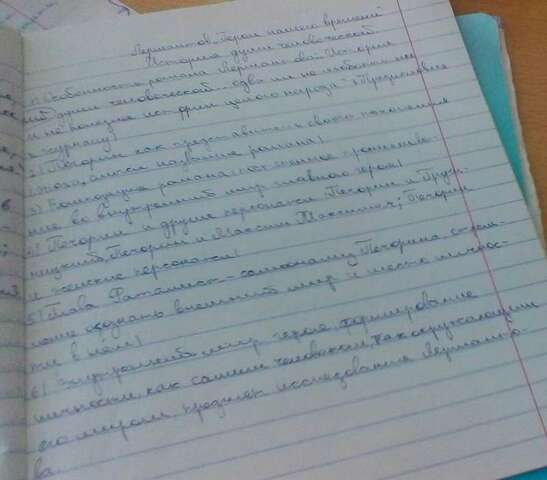 Лермонтов "Герой нашего времени"
История души человеческой.
1) Особенности романа Лермонтова. "История
души человеческой... едва ли не любопытнее
и не полезнее истории целого народа". (Предисловие
к журналу)
2) Печорин как представитель своего поколения
название романа)
3) Композиция романа постепенное проникнове-
ние во внутренний мир главного героя)
4) Печорин и другие персонажи. Печорин и Груш-
ницкий, Печорин и Максим Максимыч; Печорин
и женские персонажи)
5) Глава Фаталист - самоанализ Печорина, стрем-
ление познать внешний мир и место личнос-
ти в нём)
6) Внутренний мир героя, формирование
личности, как самим человеком, так окружающим
его миром предмет исследования Лермонто-
ва.